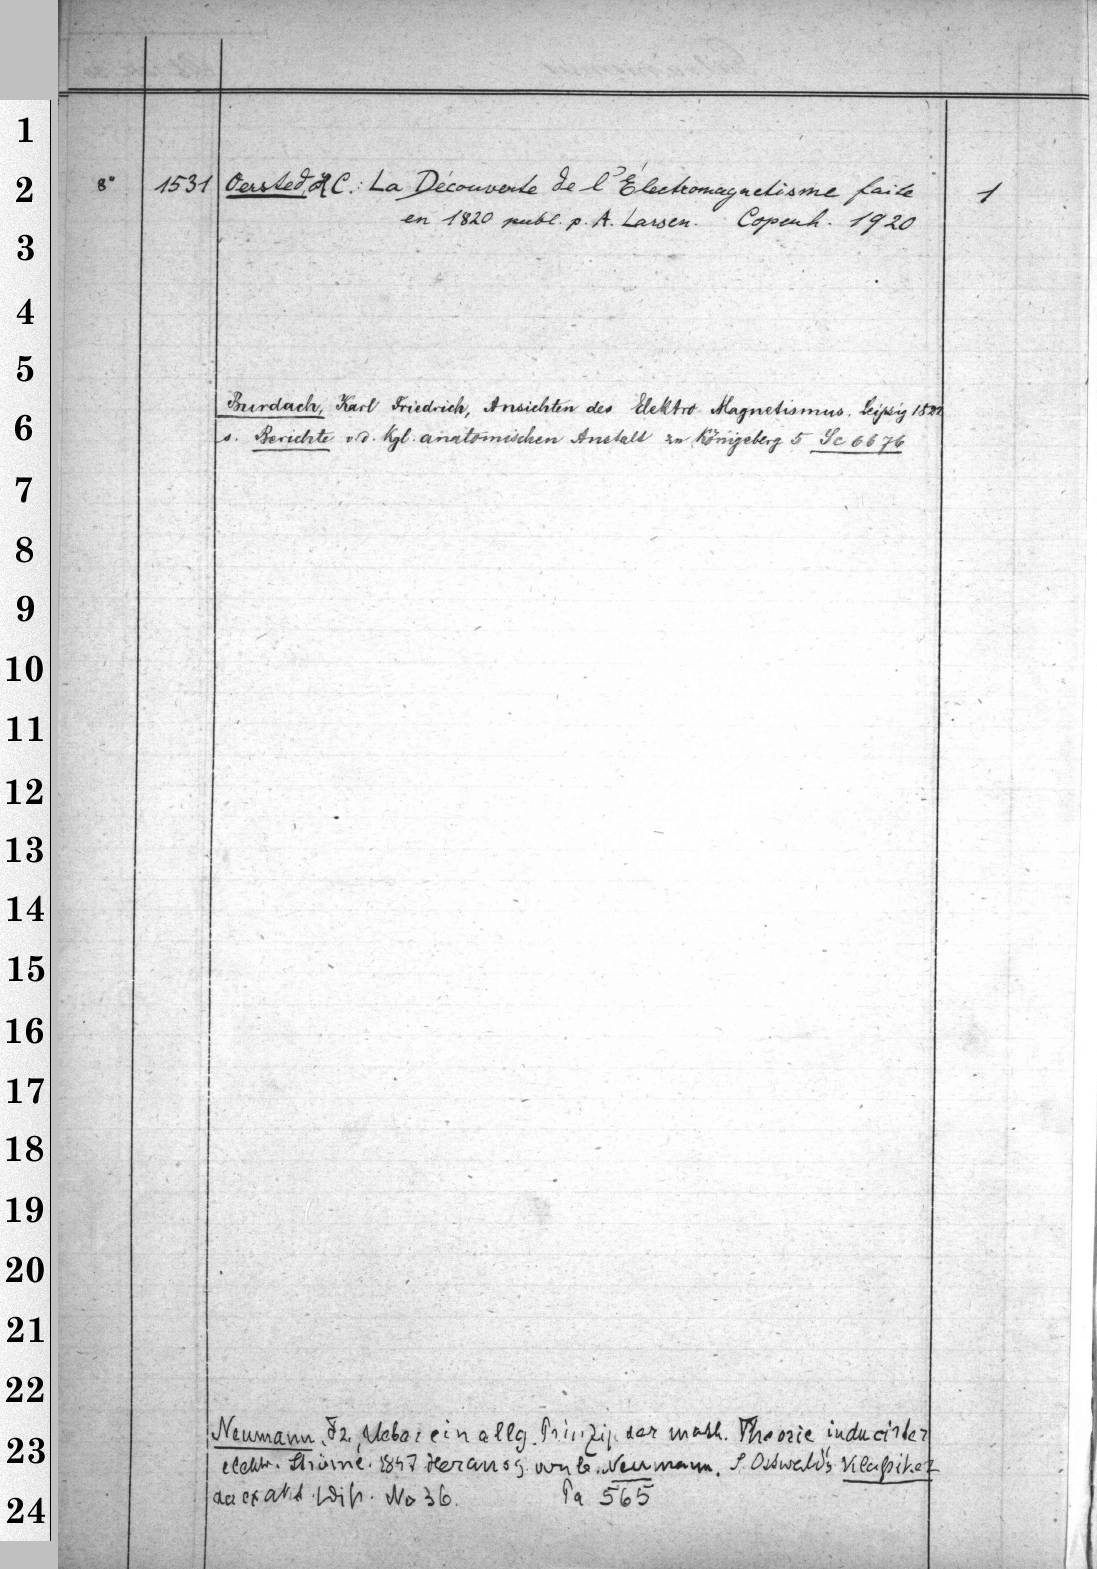 1
2
3
4
5
6
7
8
9
10
11
12
13
14
15
16
17
18
19
20
21
22
23
24
8° 1531 Oersted, H C.: La Découverte de l'Électromagnetisme faite 1
en 1820 publ. p. A. Larsen. Copenh. 1920
Burdach, Karl Friedrich, Ansichten des Elektro Magnetismus. Leipzig 1822
s. Berichte v. d. Kgl. anatomischen Anstalt zu Königsberg 5 Sc 6676
Neumann, Fz., Ueber ein allg. Prinzip der math. Theorie inducirter
elektr. Ströme. 1847 Herausg. von C. Neumann. S. Ostwald's Klassiker
d exakt. Wiss. No 36. Pa 565